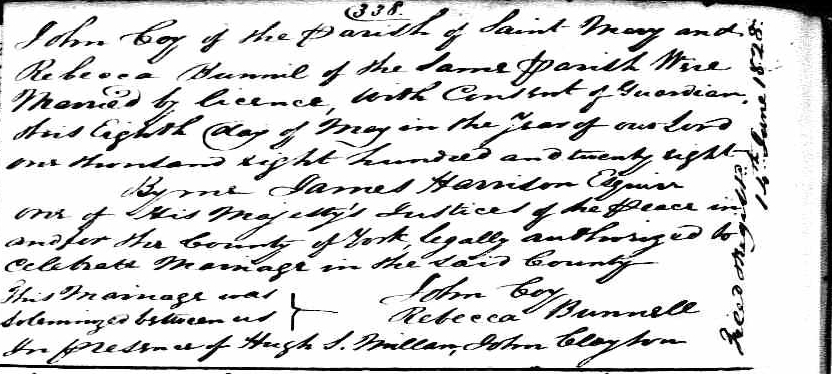 338.
John Coy of the Parish of Saint Mary and
Rebecca Bunnil of the Same Parish Were
Married by licence, with Consent of Guardian,
this Eighth day of May in the Year of our Lord
one thousand eight hundred and twenty eight
By me James Harrison Esquire
one of His Majesty's Justices of the Peace in
and for the County of York, legally authorized to
Celebrate Marriage in the said County
This Marriage was
Solemnized between us
John Coy
Rebecca Bunnell
In presence of Hugh S. Millan, John Clayton
14th June 1828.